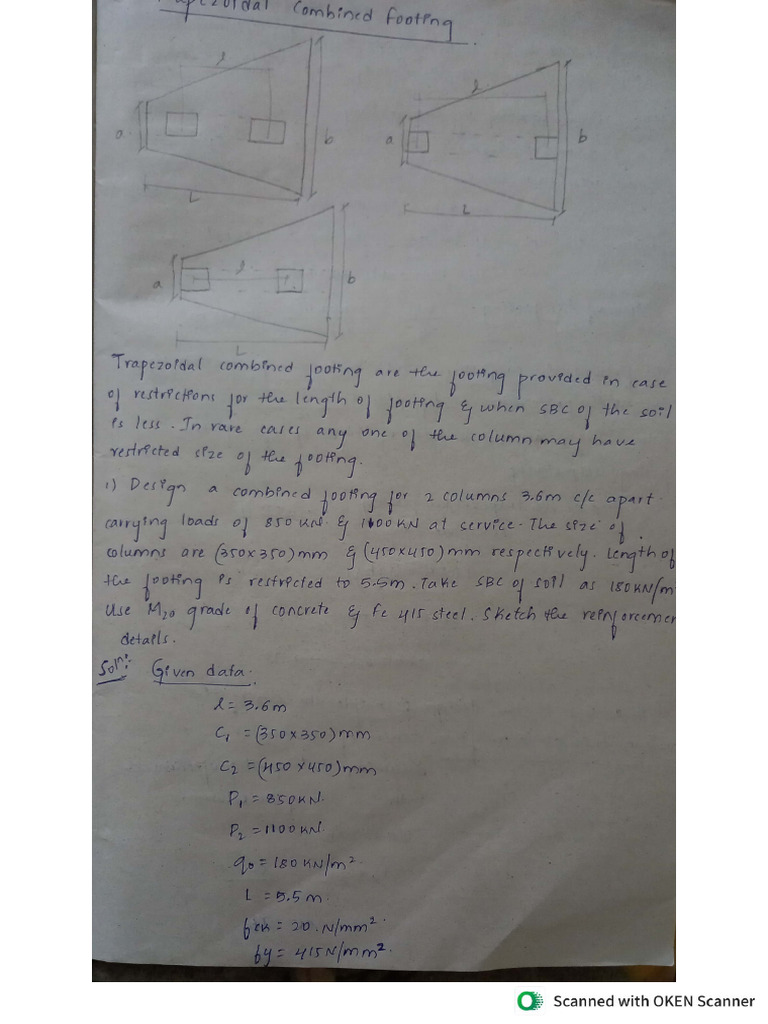 Trapezoidal Combined Footing
l
a
b
L
l
a
b
L
l
a
b
L
Trapezoidal combined footing are the footing provided in case
of restrictions for the length of footing & when SBC of the soil
is less. In rare cases any one of the column may have
restricted size of the footing.
1) Design a combined footing for 2 columns 3.6m c/c apart
carrying loads of 850 KN & 1100 KN at service. The size of
columns are (350x350)mm & (450x450)mm respectively. Length of
the footing is restricted to 5.5m. Take SBC of soil as 180KN/m
Use M20 grade of concrete & Fe 415 steel. Sketch the reinforcemen
details.
Soln: Given data.
l = 3.6m
C1 = (350x350)mm
C2 = (450x450)mm
P1 = 850KN.
P2 = 1100KN.
q0 = 180 KN/m2.
L = 5.5m.
fck = 20.N/mm2.
fy = 415N/mm2.
Scanned with OKEN Scanner